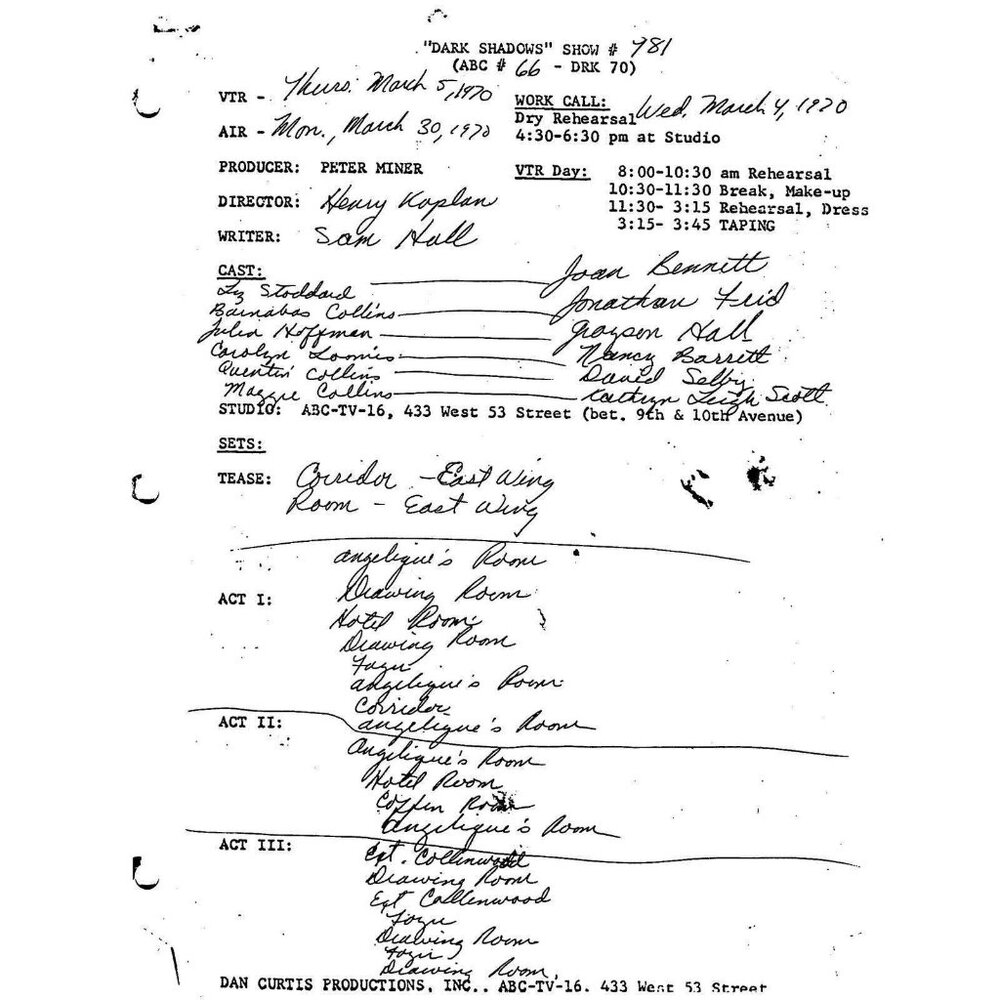 "DARK SHADOWS" SHOW # 981
(ABC # 66 - DRK 70)
VTR - Thurs. March 5, 1970
AIR - Mon., March 30, 1970
WORK CALL: Wed. March 4, 1970
Dry Rehearsal
4:30-6:30 pm at Studio
PRODUCER: PETER MINER
DIRECTOR: Henry Kaplan
WRITER: Sam Hall
VTR Day: 8:00-10:30 am Rehearsal
10:30-11:30 Break, Make-up
11:30- 3:15 Rehearsal, Dress
3:15- 3:45 TAPING
CAST:
Liz Stoddard Joan Bennett
Barnabas Collins Jonathan Frid
Julia Hoffman Grayson Hall
Carolyn Loomis Nancy Barrett
Quentin Collins David Selby
Maggie Collins Kathryn Leigh Scott
STUDIO: ABC-TV-16, 433 West 53 Street (bet. 9th & 10th Avenue)
SETS:
TEASE: Corridor - East Wing
Room - East Wing
Angelique's Room
ACT I: Drawing Room
Hotel Room
Drawing Room
Foyer
Angelique's Room
Corridor
ACT II: Angelique's Room
Angelique's Room
Hotel Room
Coffin Room
Angelique's Room
ACT III: Ext. Collinwood
Drawing Room
Ext Collinwood
Foyer
Drawing Room
Foyer
Drawing Room
DAN CURTIS PRODUCTIONS, INC., ABC-TV-16, 433 West 53 Street